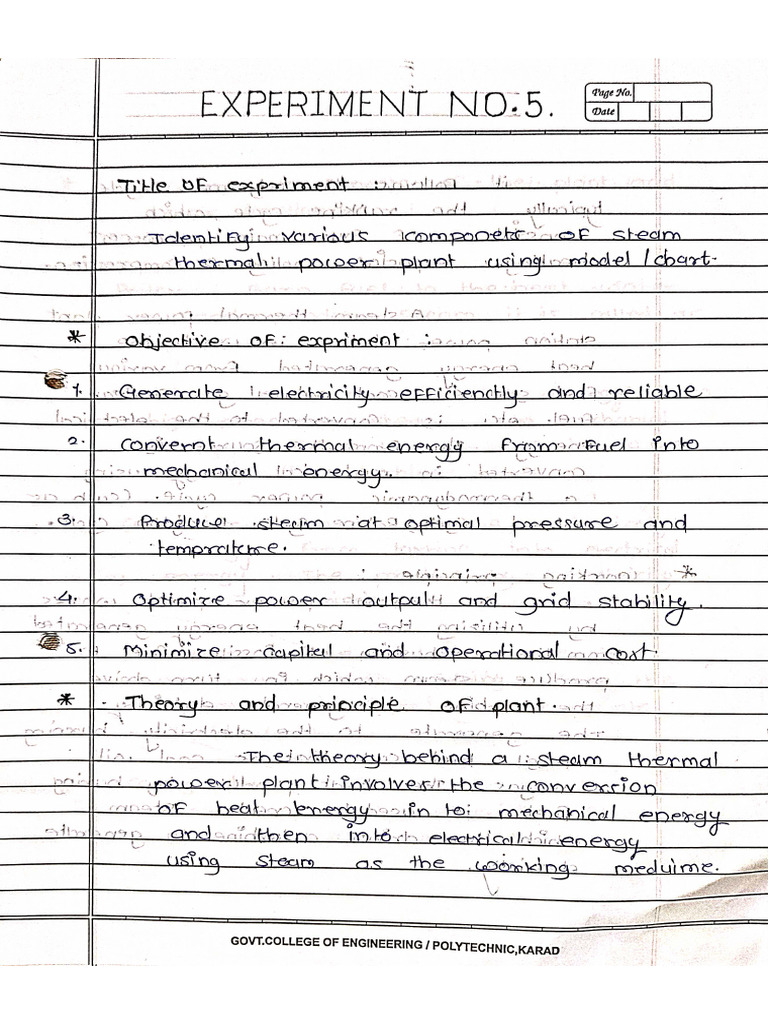 EXPERIMENT NO.5.
Page No.
Date
Title OF expriment :
Identify various componets OF steam
thermal power plant using model /chart.
* Objective OF expriment
1. Generate electricity efficienctly and reliable
2. Convernt thermal energy from Fuel into
mechanical energy.
3. Produce steam at optimal pressure and
temprature.
4. Optimize power output and grid stability.
5. Minimize capital and operational cost.
* Theory and principle OF plant.
The theory behind a steam thermal
power plant involves the conversion
OF heat energy in to mechanical energy
and then into electrical energy
using steam as the working meduime.
GOVT.COLLEGE OF ENGINEERING / POLYTECHNIC,KARAD